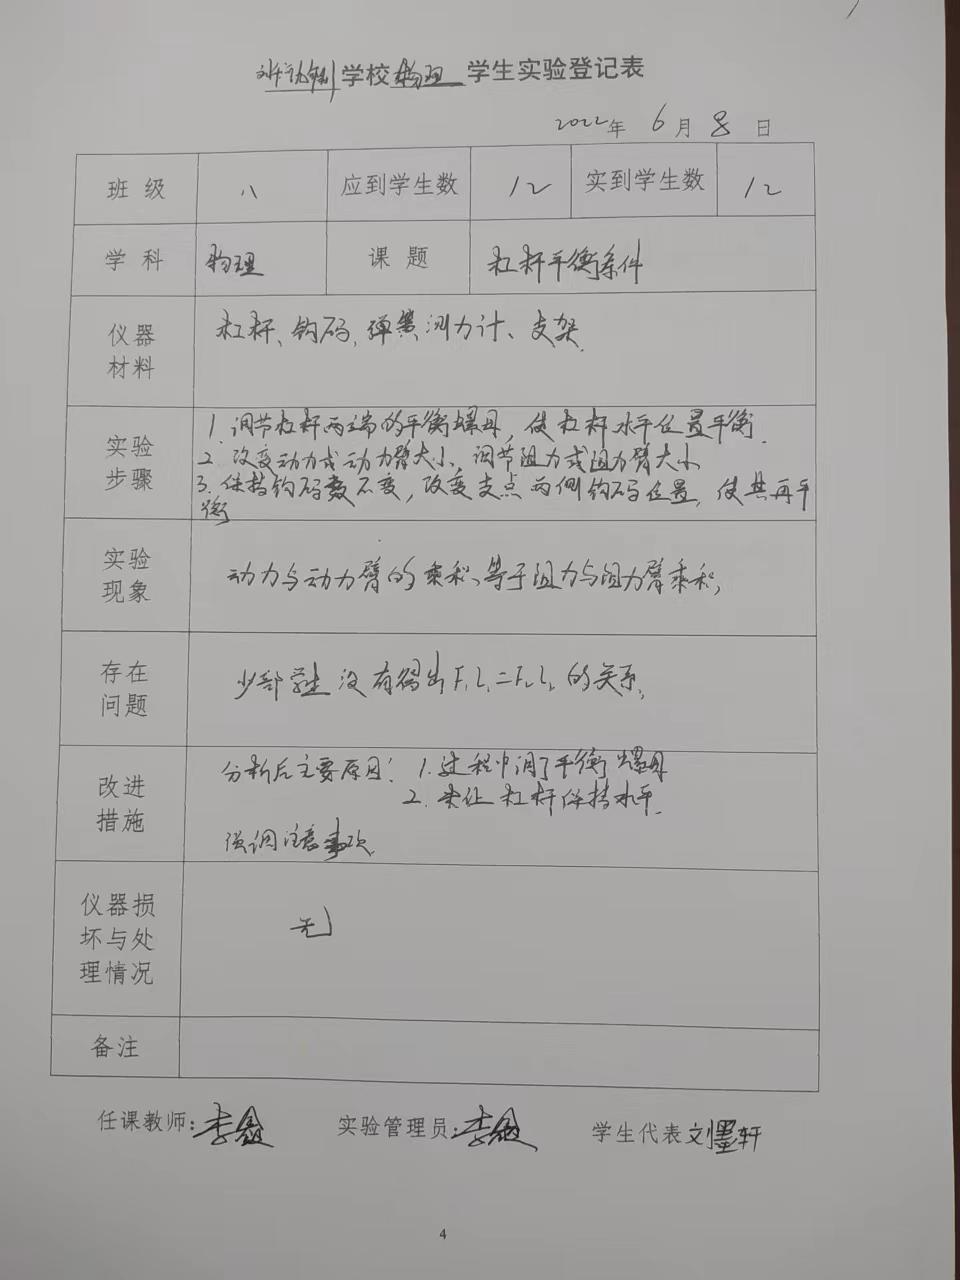 学校物理学生实验登记表
2022年 6月 8日
班级 八 应到学生数 12 实到学生数 12
学科 物理 课题 杠杆平衡条件
仪器
材料
杠杆、钩码、弹簧测力计、支架.
实验
步骤
1.调节杠杆两端的平衡螺母,使杠杆水平位置平衡.
2.改变动力或动力臂大小,调节阻力或阻力臂大小
3.保持钩码数不变,改变支点两侧钩码位置,使其再平
衡
实验
现象
动力与动力臂的乘积、等于阻力与阻力臂乘积,
存在
问题
少部学生没有得出F₁L₁=F₂L₂的关系,
改进
措施
分析后主要原因:1.过程中调了平衡螺母
2.未让杠杆保持水平.
强调注意事项.
仪器损
坏与处
理情况
无
备注
任课教师: 李 实验管理员: 李 学生代表 刘墨轩
4